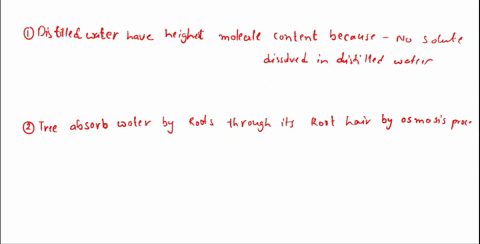 ① Distilled water have heighet molecule content because - No solute
dissolved in distilled water
② Tree absorb water by Roots through its Root hair by osmosis proc.